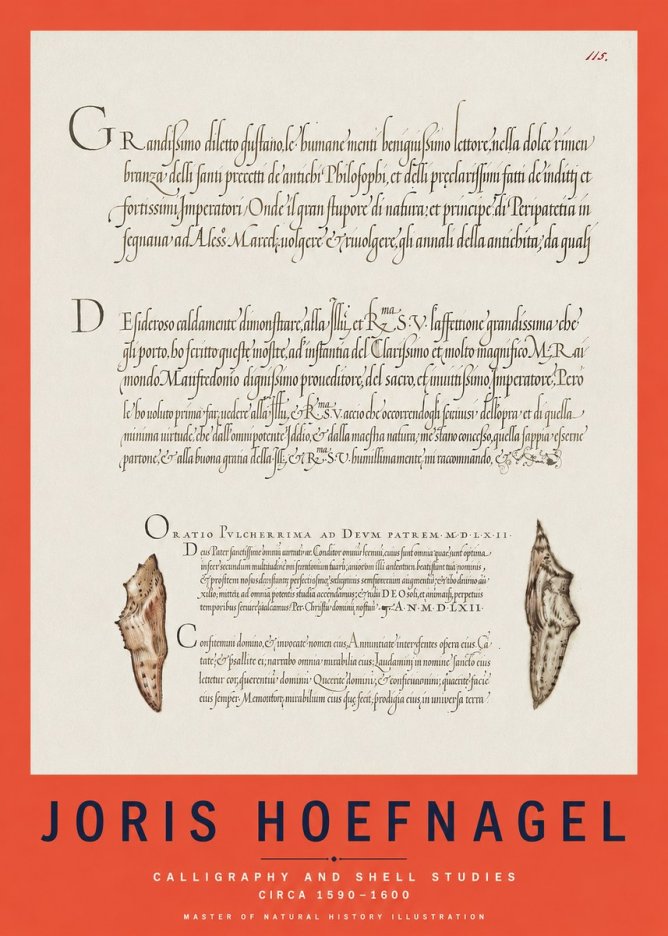 115.
GRandißimo diletto gustano, le humane menti benignißimo lettore, nella dolce rimen
branza delli santi precetti de antichi Philosophi, et delli preclarissimi fatti de inditti et
fortissimi Imperatori, Onde il gran stupore di natura, et principe di Peripatetia in
segnaua ad Aless. uolgere & riuolgere, gli annali della antichita, da quali
DEsideroso caldamente dimonstrare, alla Illu. et Rma S. V. l'affettione grandissima che
gli porto, ho scritto queste nostre, ad instantia del Clarissimo et molto magnifico M. Rai
mondo Manfredonio dignissimo proueditore, del sacro, et Imperatore, Però
le ho uoluto prima far uedere alla Illu, & Rma S. V. accio che occorrendogli dellopra et di quella
minima uirtude, che dall'omnipotente Iddio, & dalla maestra natura, me stato concesso, quella sappia esserne
partone, & alla buona gratia della Ill, & Rma S. V. humillimamente mi raccomando, &
ORATIO PVLCHERRIMA AD DEVM PATREM · M · D · LX · II ·
Deus Pater sanctissime omnium Conditor omnium cuius sunt omnia quae sunt optima
nominis,
& profitem
ad omnia potentis studia accendamus; DEO soli, et animas, perpetuis
temporibus Per Christum dominum nostrum A · N · M · D · LXII ·
Confitemini domino, & inuocate nomen eius, Annuntiate inter gentes opera eius, Ca
tate, & psallite ei, narrabo omnia mirabilia eius, Laudamini in nomine sancto eius
letetur cor, querentium dominum Querite dominum, & confirmamini, querite facie
eius semper, Mementote mirabilium eius que fecit, prodigia eius, in uniuersa terra
JORIS HOEFNAGEL
CALLIGRAPHY AND SHELL STUDIES
CIRCA 1590–1600
MASTER OF NATURAL HISTORY ILLUSTRATION